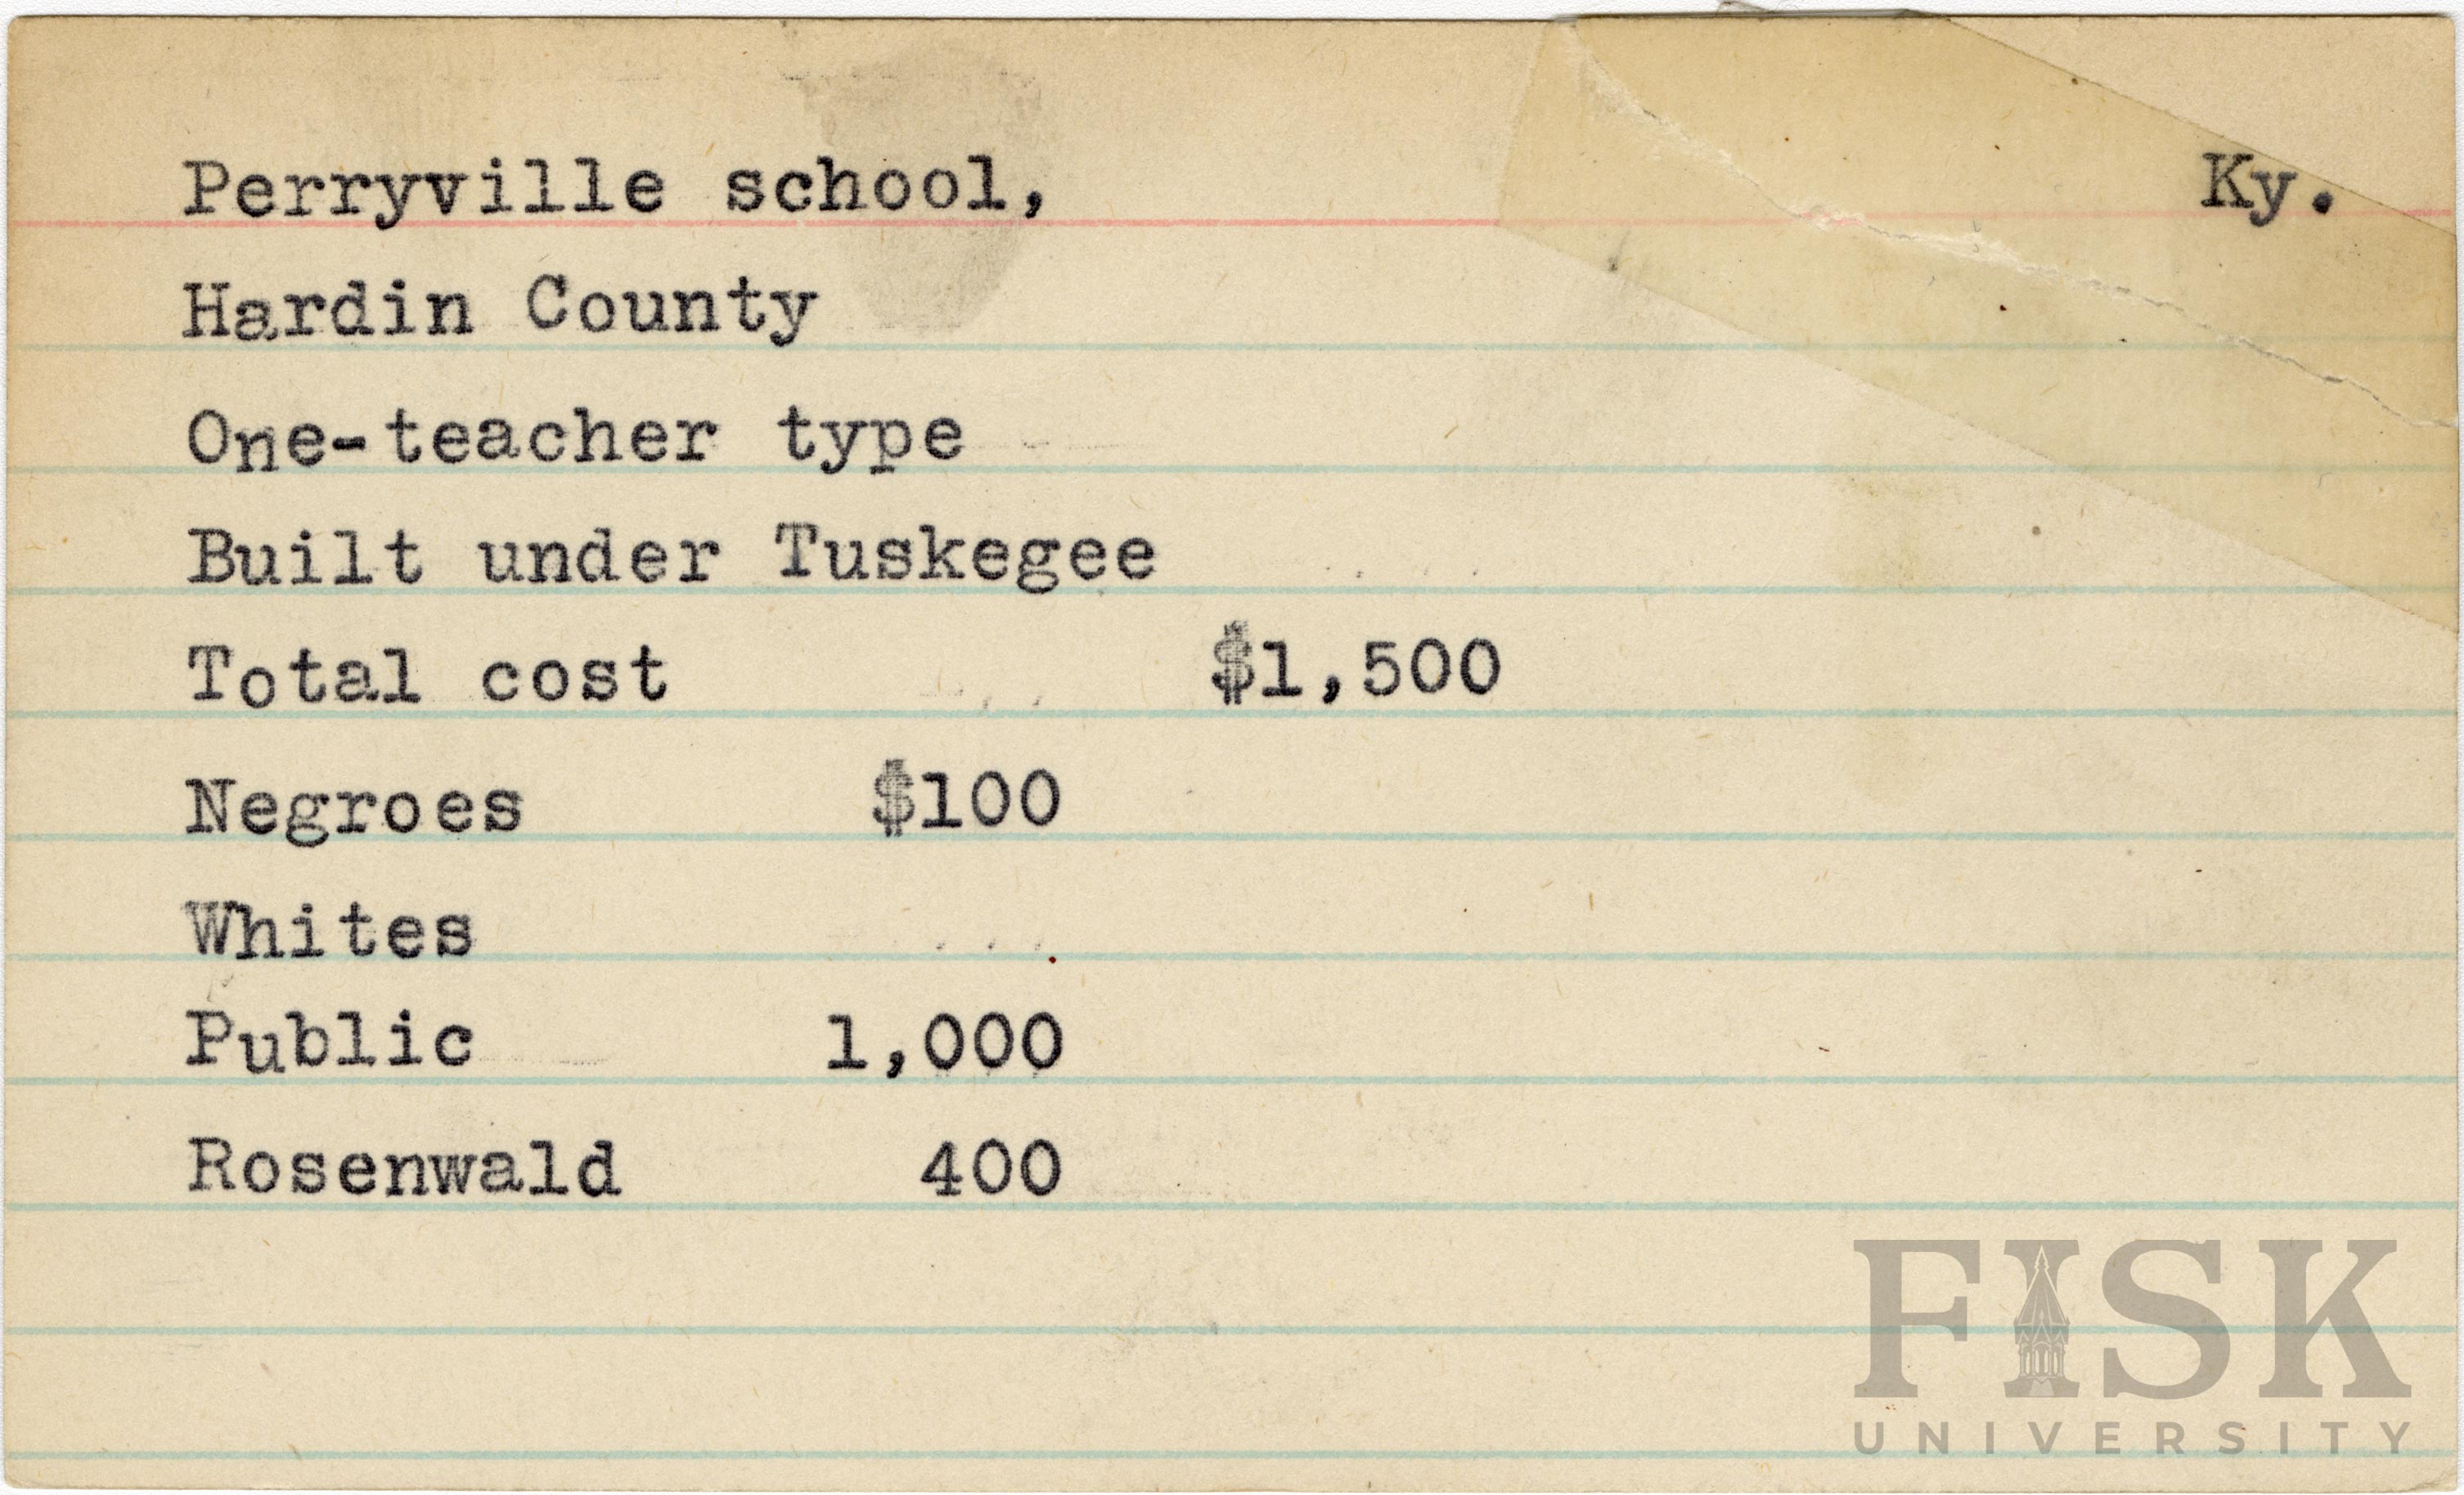 Perryville school, Ky.
Hardin County
One-teacher type
Built under Tuskegee
Total cost $1,500
Negroes $100
Whites
Public 1,000
Rosenwald 400
FISK
UNIVERSITY